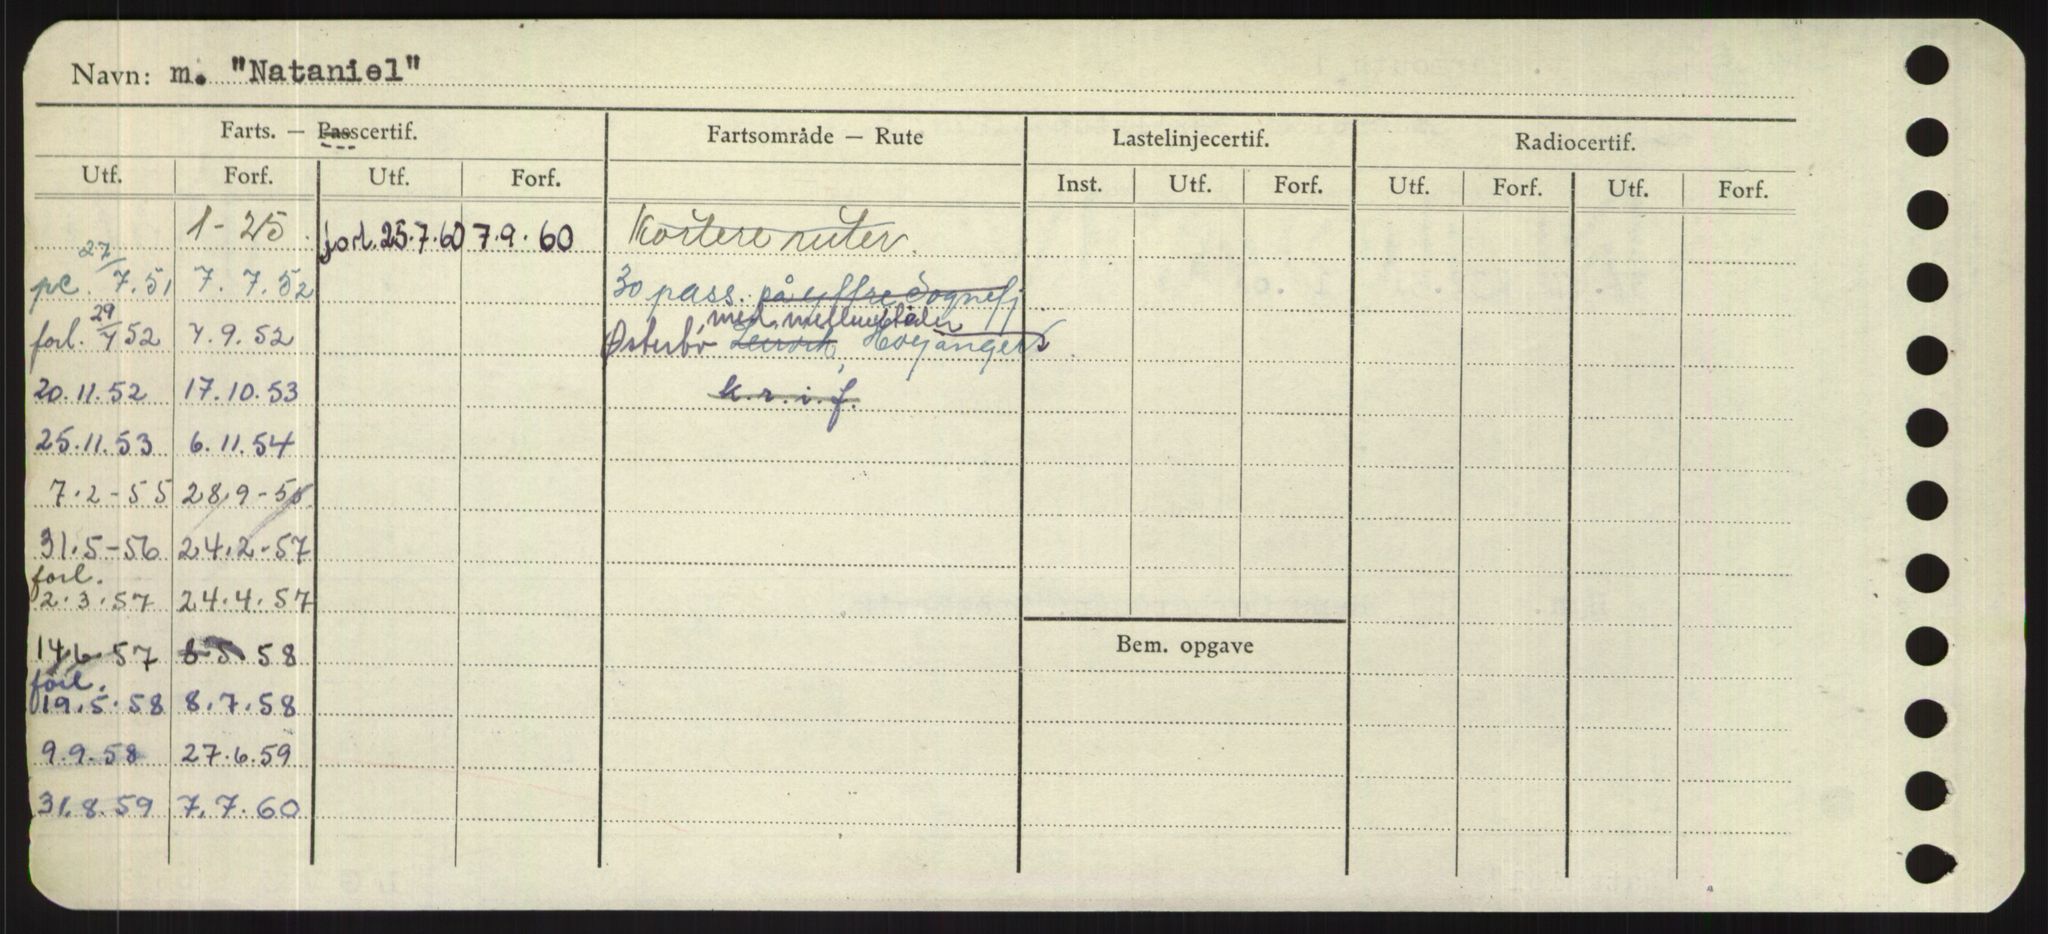 Navn: m. "Nataniel"
Farts. — Passcertif. Fartsområde — Rute Lastelinjecertif. Radiocertif.
Utf. Forf. Utf. Forf. Inst. Utf. Forf. Utf. Forf. Utf. Forf.
1-25 forl. 25.7.60 7.9.60 Kortere ruter
pc. 27/7.51 7.7.52 30 pass. på yttre Sognefj
forl. 29/7 52 7.9.52 Østerbø med mellumstader Høyanger
20.11.52 17.10.53 k.r.i.f.
25.11.53 6.11.54
7.2-55 28.9-55
31.5-56 24.2-57
forl.
2.3.57 24.4.57
14.6.57 8.5.58 Bem. opgave
forl.
19.5.58 8.7.58
9.9.58 27.6.59
31.8.59 7.7.60